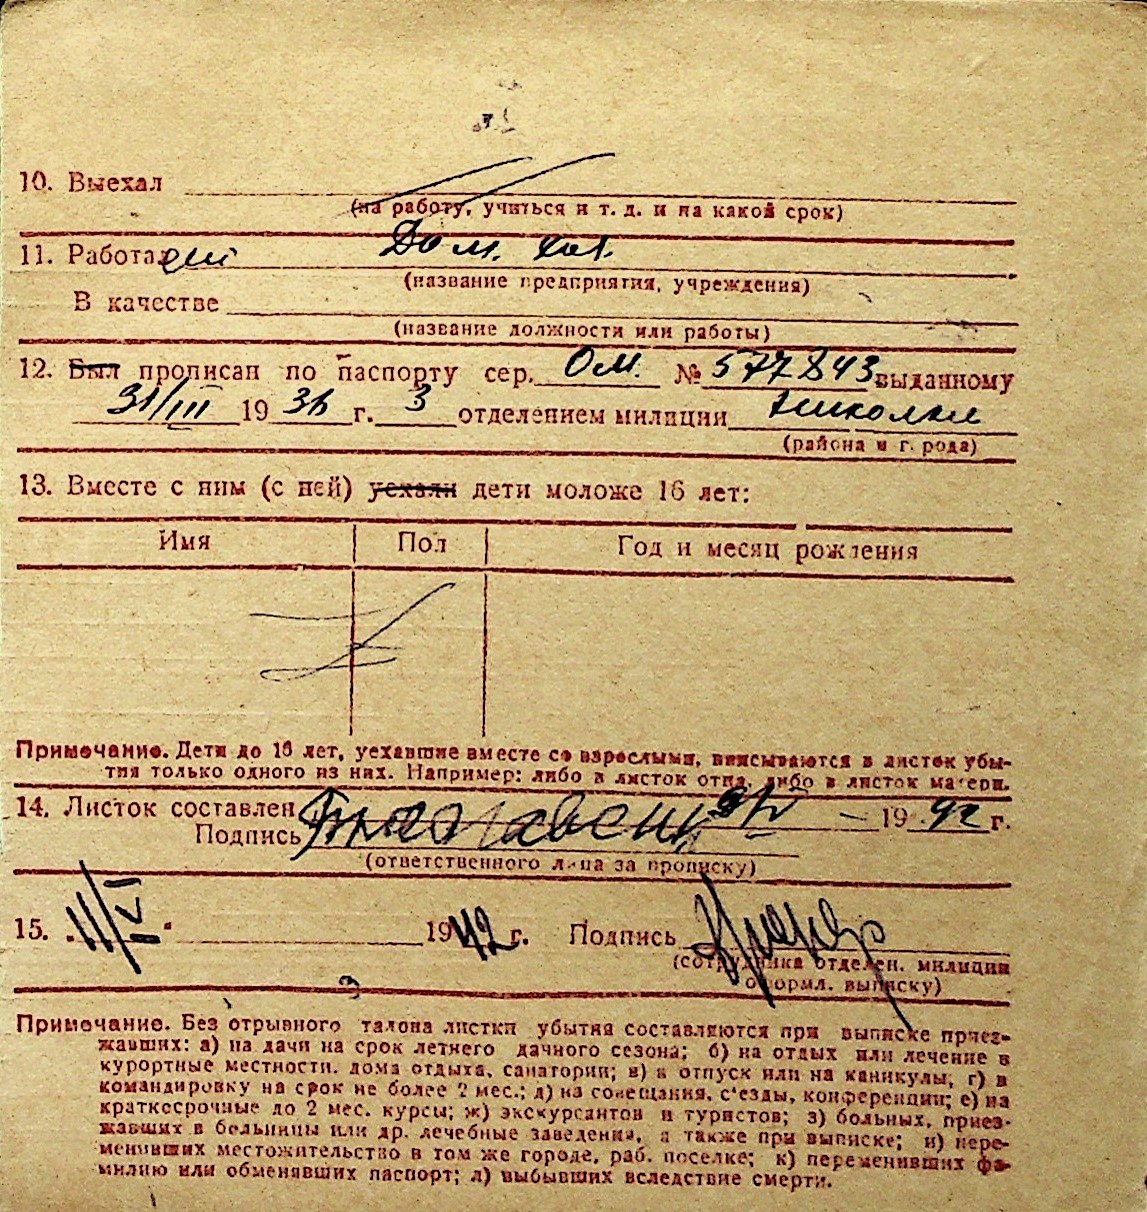 10. Выехал
(на работу, учиться и т. д. и на какой срок)
11. Работа Дом. хоз.
(название предприятия, учреждения)
В качестве
(название должности или работы)
12. Был прописан по паспорту сер. ОМ. № 577843 выданному
31/III 1936 г. 3 отделением милиции Николаи
(района и г. рода)
13. Вместе с ним (с ней) уехали дети моложе 16 лет:
Имя Пол Год и месяц рождения
Примечание. Дети до 16 лет, уехавшие вместе со взрослыми, вписываются в листок убы-
тия только одного из них. Например: либо в листок отца, либо в листок матери.
14. Листок составлен 1942 г.
Подпись
(ответственного лица за прописку)
15. „11/V“ 1942 г. Подпись
(сотрудника отделен. милиции
оформл. выписку)
Примечание. Без отрывного талона листки убытия составляются при выписке приез-
жавших: а) на дачи на срок летнего дачного сезона; б) на отдых или лечение в
курортные местности, дома отдыха, санатории; в) в отпуск или на каникулы; г) в
командировку на срок не более 2 мес.; д) на совещания, с'езды, конференции; е) на
краткосрочные до 2 мес. курсы; ж) экскурсантов и туристов; з) больных, приез-
жавших в больницы или др. лечебные заведения, а также при выписке; и) пере-
менивших местожительство в том же городе, раб. поселке; к) переменивших фа-
милию или обменявших паспорт; л) выбывших вследствие смерти.